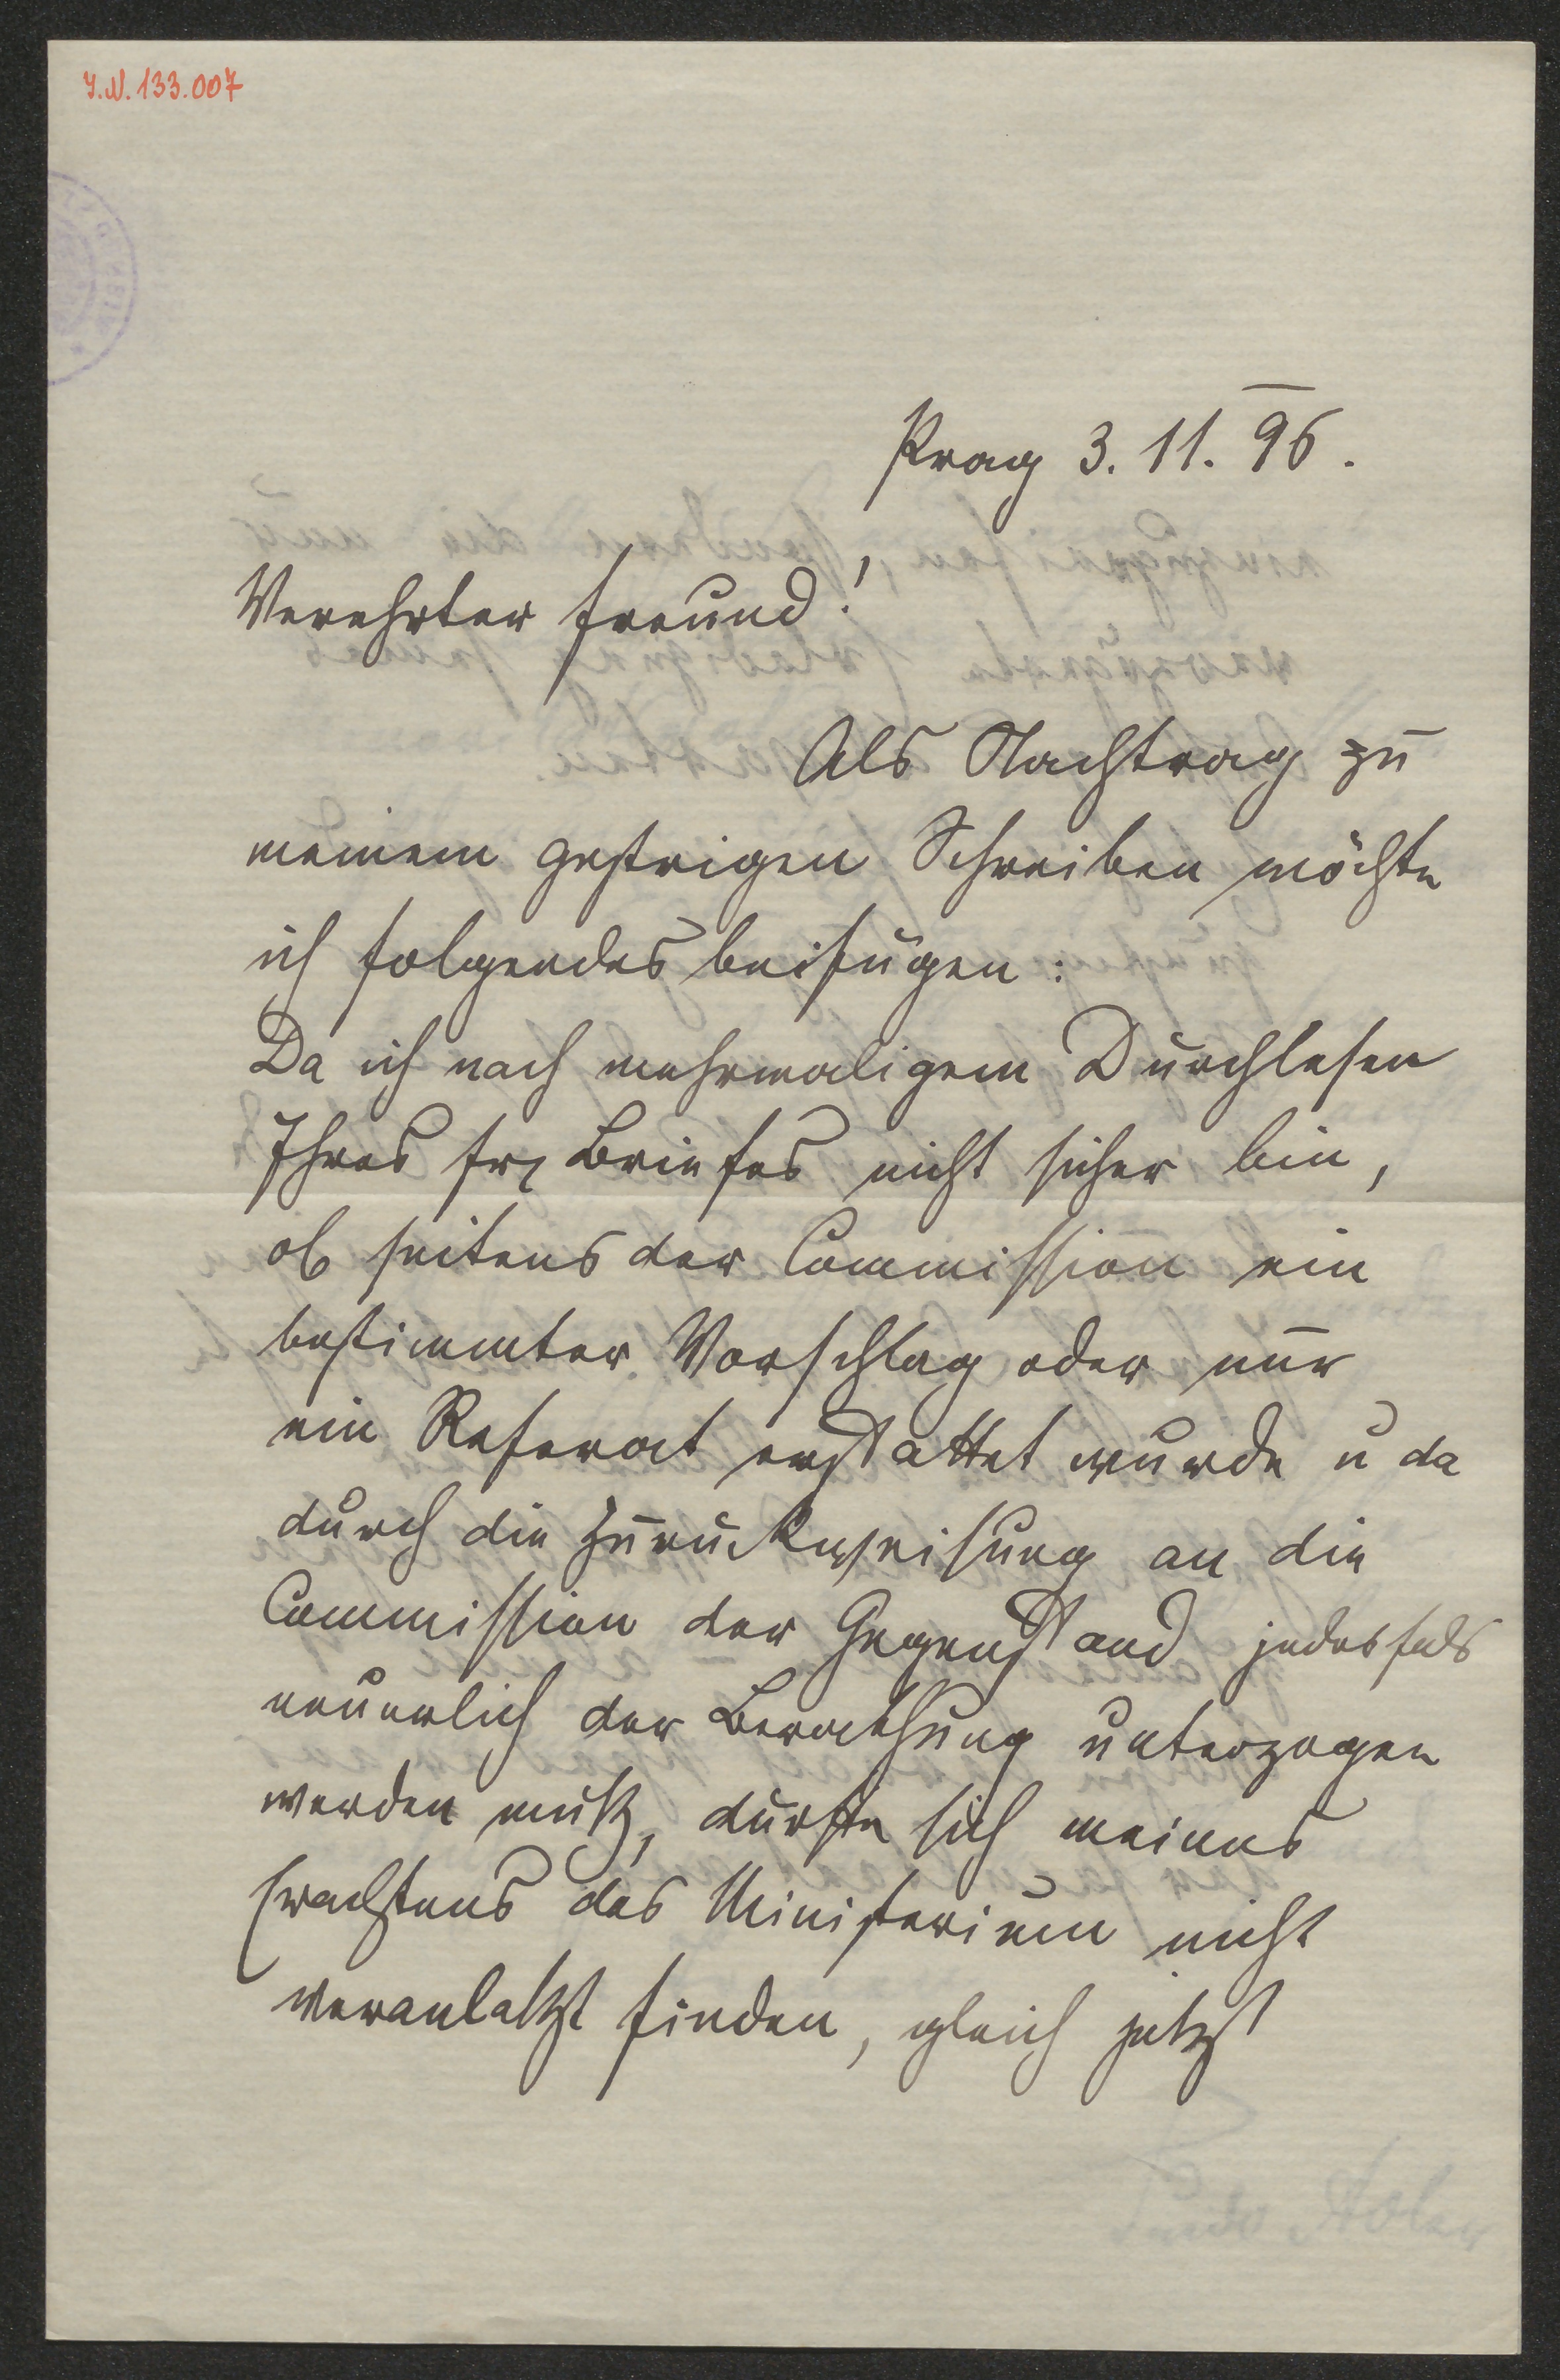 J.N. 133.007
Prag 3. 11. 96.
Verehrter Freund!
Als Nachtrag zu
meinem gestrigen Schreiben möchte
ich folgendes beifügen:
Da ich nach mehrmaligem Durchlesen
Ihres frz Briefes nicht sicher bin,
ob seitens der Commission ein
bestimmter Vorschlag oder nur
ein Referat erstattet wurde u da
durch die Zurückweisung an die
Commission der Gegenstand jedesfals
neuerlich der Berathung unterzogen
werden muß, dürfte sich meines
Erachtens das Ministerium nicht
veranlaßt finden, gleich jetzt